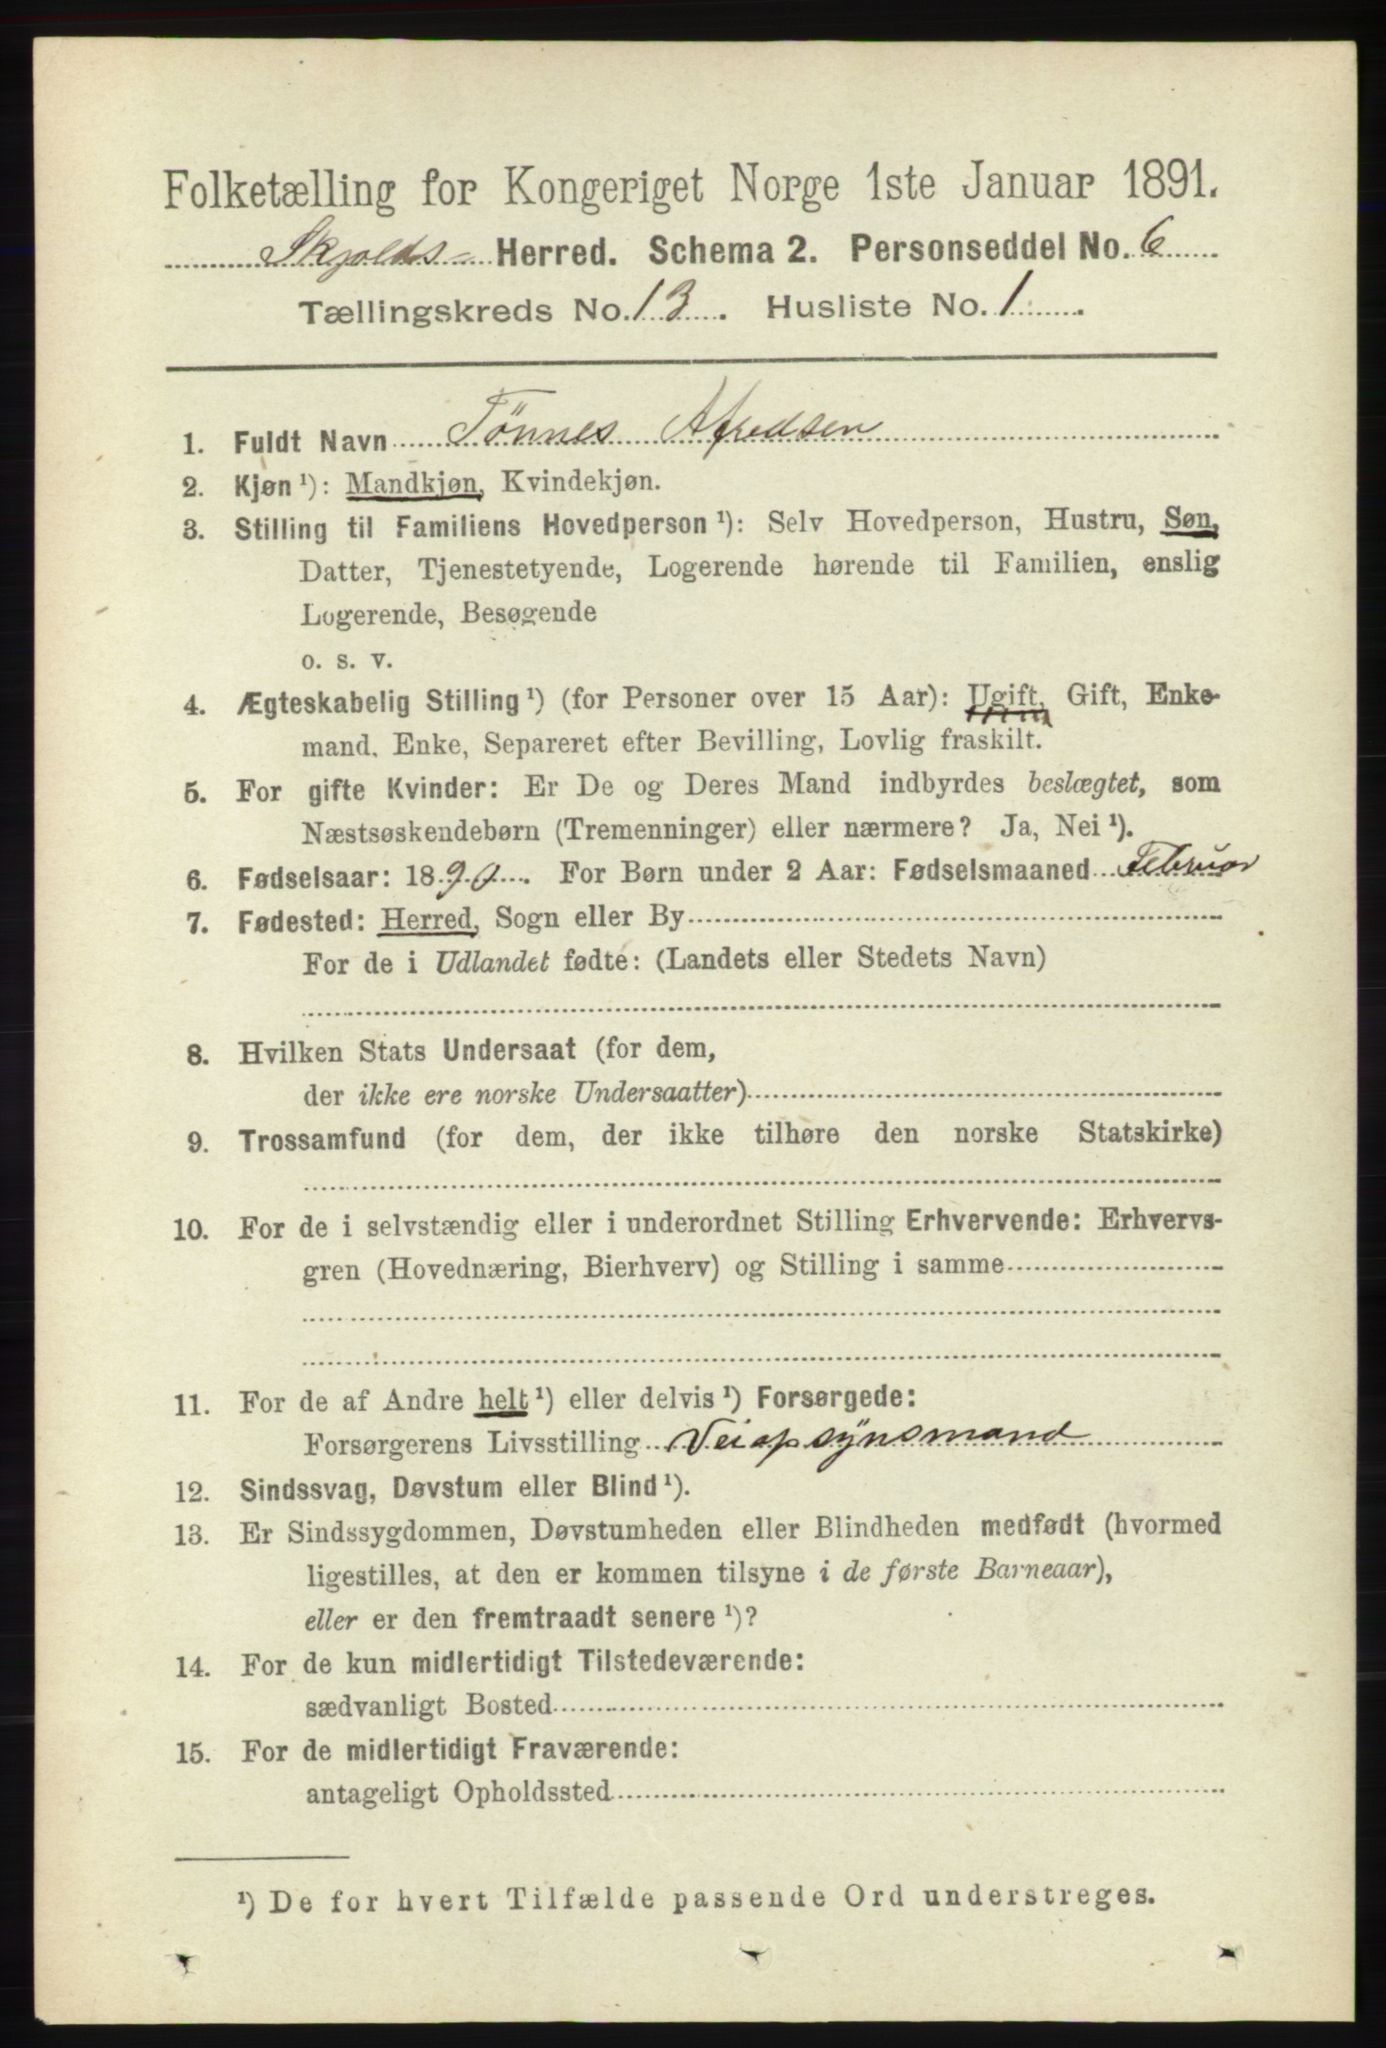 Folketælling for Kongeriget Norge 1ste Januar 1891.
Skjolds- Herred. Schema 2. Personseddel No. 6
Tællingskreds No. 13. Husliste No. 1.
1. Fuldt Navn Tönnes Afredsen
2. Kjøn ¹): Mandkjøn, Kvindekjøn.
3. Stilling til Familiens Hovedperson ¹): Selv Hovedperson, Hustru, Søn,
Datter, Tjenestetyende, Logerende hørende til Familien, enslig
Logerende, Besøgende
o. s. v.
4. Ægteskabelig Stilling ¹) (for Personer over 15 Aar): Ugift, Gift, Enke-
mand, Enke, Separeret efter Bevilling, Lovlig fraskilt.
5. For gifte Kvinder: Er De og Deres Mand indbyrdes beslægtet, som
Næstsøskendebørn (Tremenninger) eller nærmere? Ja, Nei ¹).
6. Fødselsaar: 1890. For Børn under 2 Aar: Fødselsmaaned Februar
7. Fødested: Herred, Sogn eller By
For de i Udlandet fødte: (Landets eller Stedets Navn)
8. Hvilken Stats Undersaat (for dem,
der ikke ere norske Undersaatter)
9. Trossamfund (for dem, der ikke tilhøre den norske Statskirke)
10. For de i selvstændig eller i underordnet Stilling Erhvervende: Erhvervs-
gren (Hovednæring, Bierhverv) og Stilling i samme
11. For de af Andre helt ¹) eller delvis ¹) Forsørgede:
Forsørgerens Livsstilling Veiopsynsmand
12. Sindssvag, Døvstum eller Blind ¹).
13. Er Sindssygdommen, Døvstumheden eller Blindheden medfødt (hvormed
ligestilles, at den er kommen tilsyne i de første Barneaar),
eller er den fremtraadt senere ¹)?
14. For de kun midlertidigt Tilstedeværende:
sædvanligt Bosted
15. For de midlertidigt Fraværende:
antageligt Opholdssted
¹) De for hvert Tilfælde passende Ord understreges.